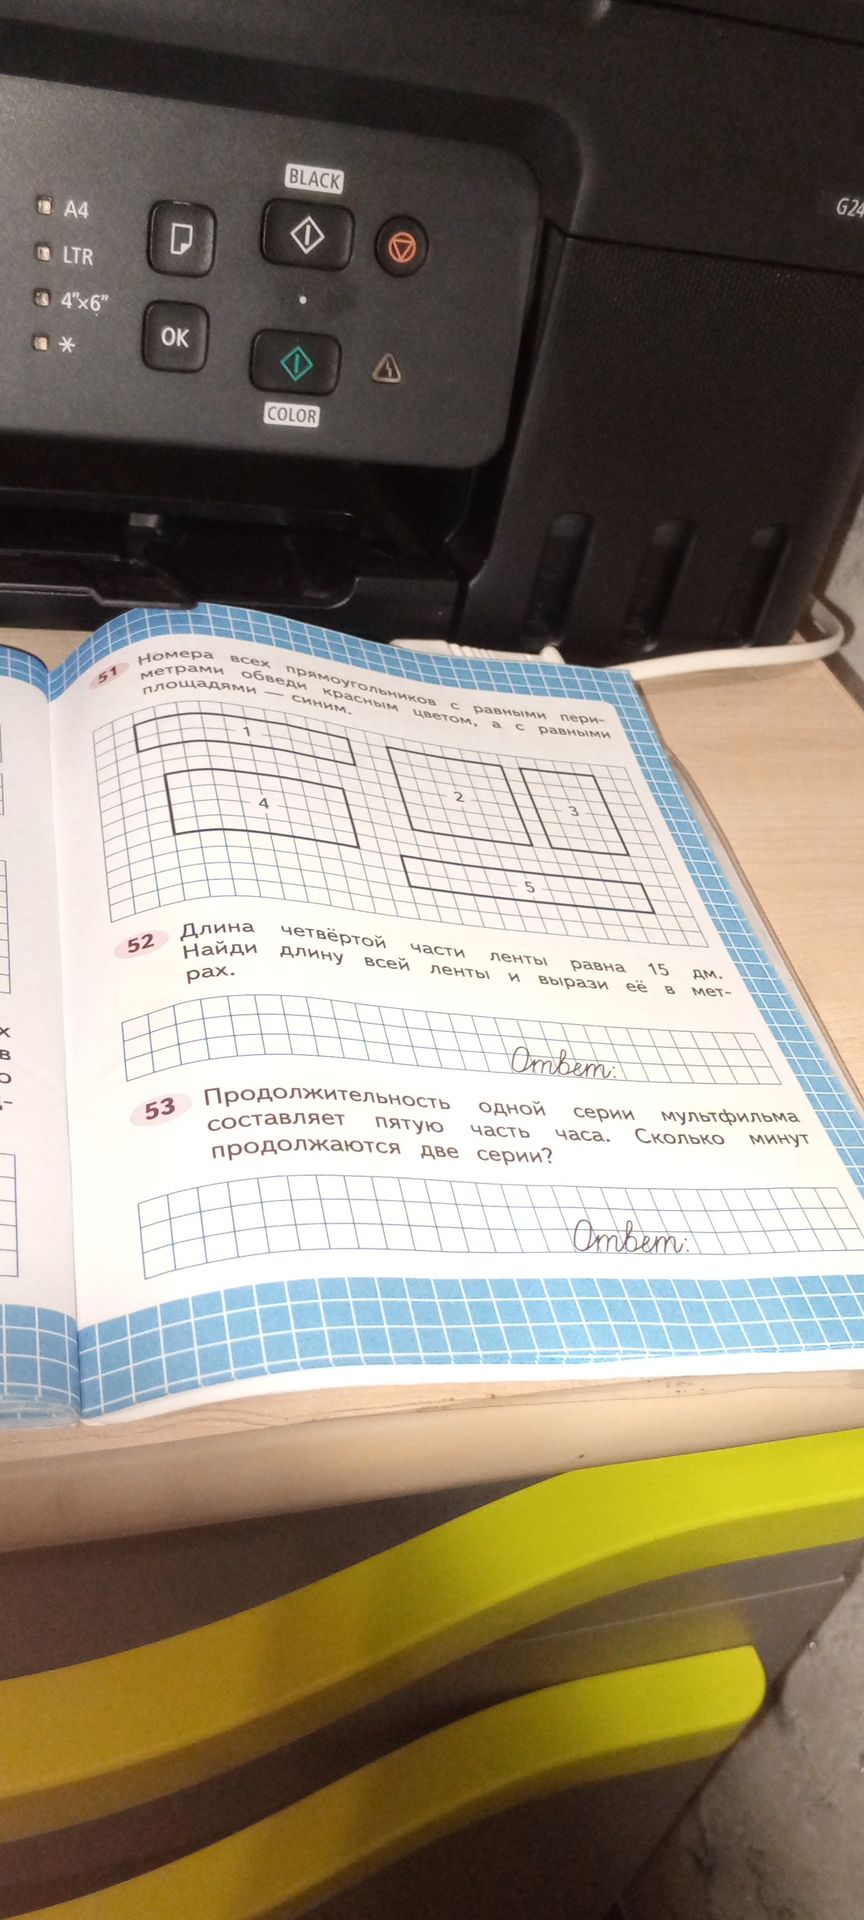 BLACK
A4
LTR
4"x6"
OK
COLOR
G24
51 Номера всех прямоугольников с равными пери-
метрами обведи красным цветом, а с равными
площадями — синим.
1
2
3
4
5
52 Длина четвёртой части ленты равна 15 дм.
Найди длину всей ленты и вырази её в мет-
рах.
Ответ:
53 Продолжительность одной серии мультфильма
составляет пятую часть часа. Сколько минут
продолжаются две серии?
Ответ:
х
в
о